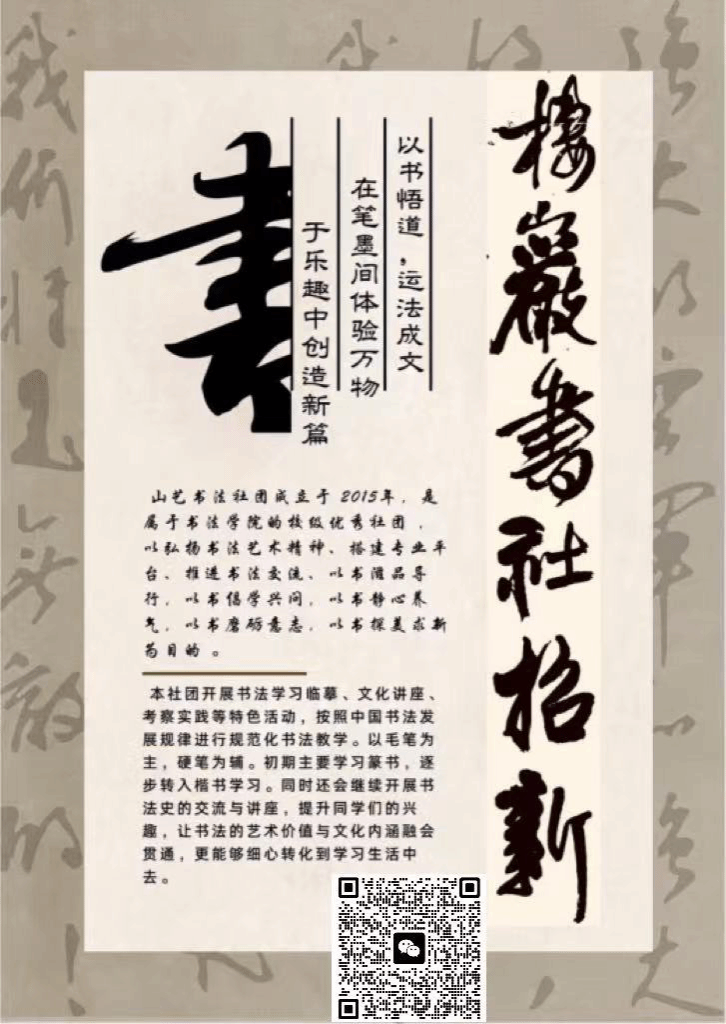 樓巖書社招新
以书悟道，运法成文
在笔墨间体验万物
于乐趣中创造新篇
書
山艺书法社团成立于 2015年，是
属于书法学院的校级优秀社团，
以弘扬书法艺术精神、搭建专业平
台、推进书法交流、以书湑品导
行，以书倡学兴问，以书静心养
气，以书磨砺意志，以书探美求新
为目的 。
本社团开展书法学习临摹、文化讲座、
考察实践等特色活动，按照中国书法发
展规律进行规范化书法教学。以毛笔为
主，硬笔为辅。初期主要学习篆书，逐
步转入楷书学习。同时还会继续开展书
法史的交流与讲座，提升同学们的兴
趣，让书法的艺术价值与文化内涵融会
贯通，更能够细心转化到学习生活中
去。